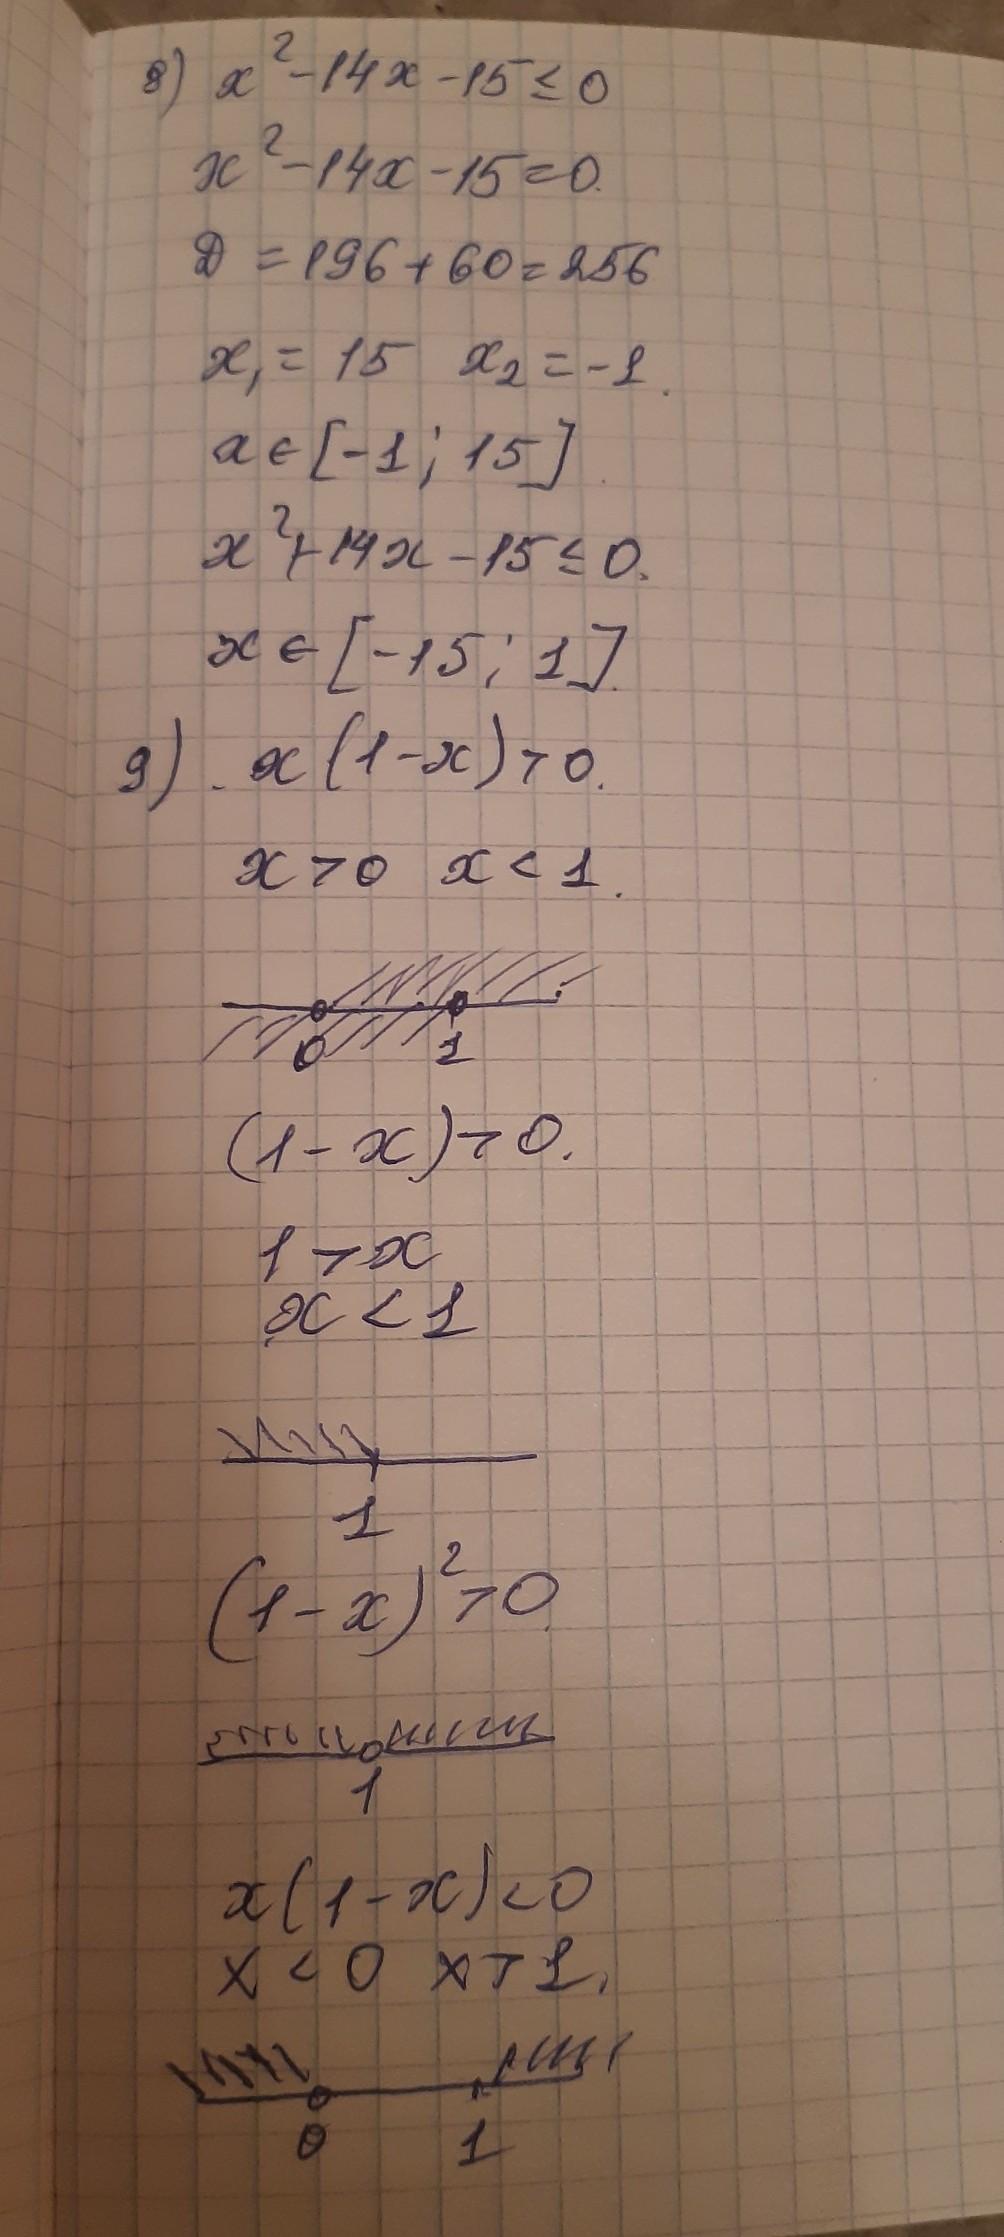 8) x² - 14x - 15 ≤ 0
x² - 14x - 15 = 0.
D = 196 + 60 = 256
x₁ = 15 x₂ = -1.
x ∈ [-1; 15].
x² + 14x - 15 ≤ 0.
x ∈ [-15; 1].
9). x(1-x) > 0.
x > 0 x < 1.
0 1
(1-x) > 0.
1 > x
x < 1
1
(1-x)² > 0.
1
x(1-x) < 0
x < 0 x > 1.
0 1